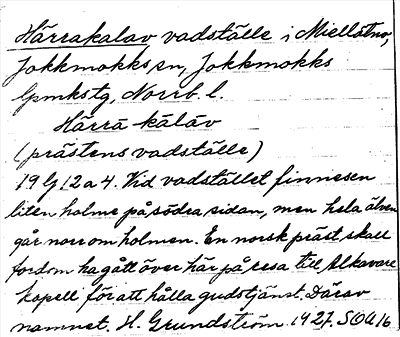 Härrakalav vadställe i Miellätno,
Jokkmokks sn, Jokkmokks
lpmkstg, Norrb. l.
Härrá kálåv
(prästens vadställe)
19 G 12 a 4. Vid vadstället finnes en
liten holme på södra sidan, men hela älven
går norr om holmen. En norsk präst skall
fordom ha gått över här på resa till Alkavare
kapell för att hålla gudstjänst. Därav
namnet. H. Grundström. 1927. SOU 16